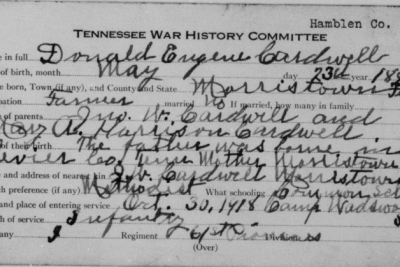 Hamblen Co.
TENNESSEE WAR HISTORY COMMITTEE
e in full Donald Eugene Cardwell
of birth, month May day 23d year, 18
re born, Town (if any), and County and State Morristown
pation Farmer married No If married, how many in family
of parents Jno. W. Cardwell and
Harrison Cardwell
of their birth. The father was born in
evier Co, Tenn Mother Morristown
e and address of nearest in J.W. Cardwell Morristown
h preference (if any) Methodist What schooling Common sch
and place of entering service Oct. 30, 1918 Camp Wadswo
h of service Infantry
any I Regiment 61st Pioneers Division
(Over)